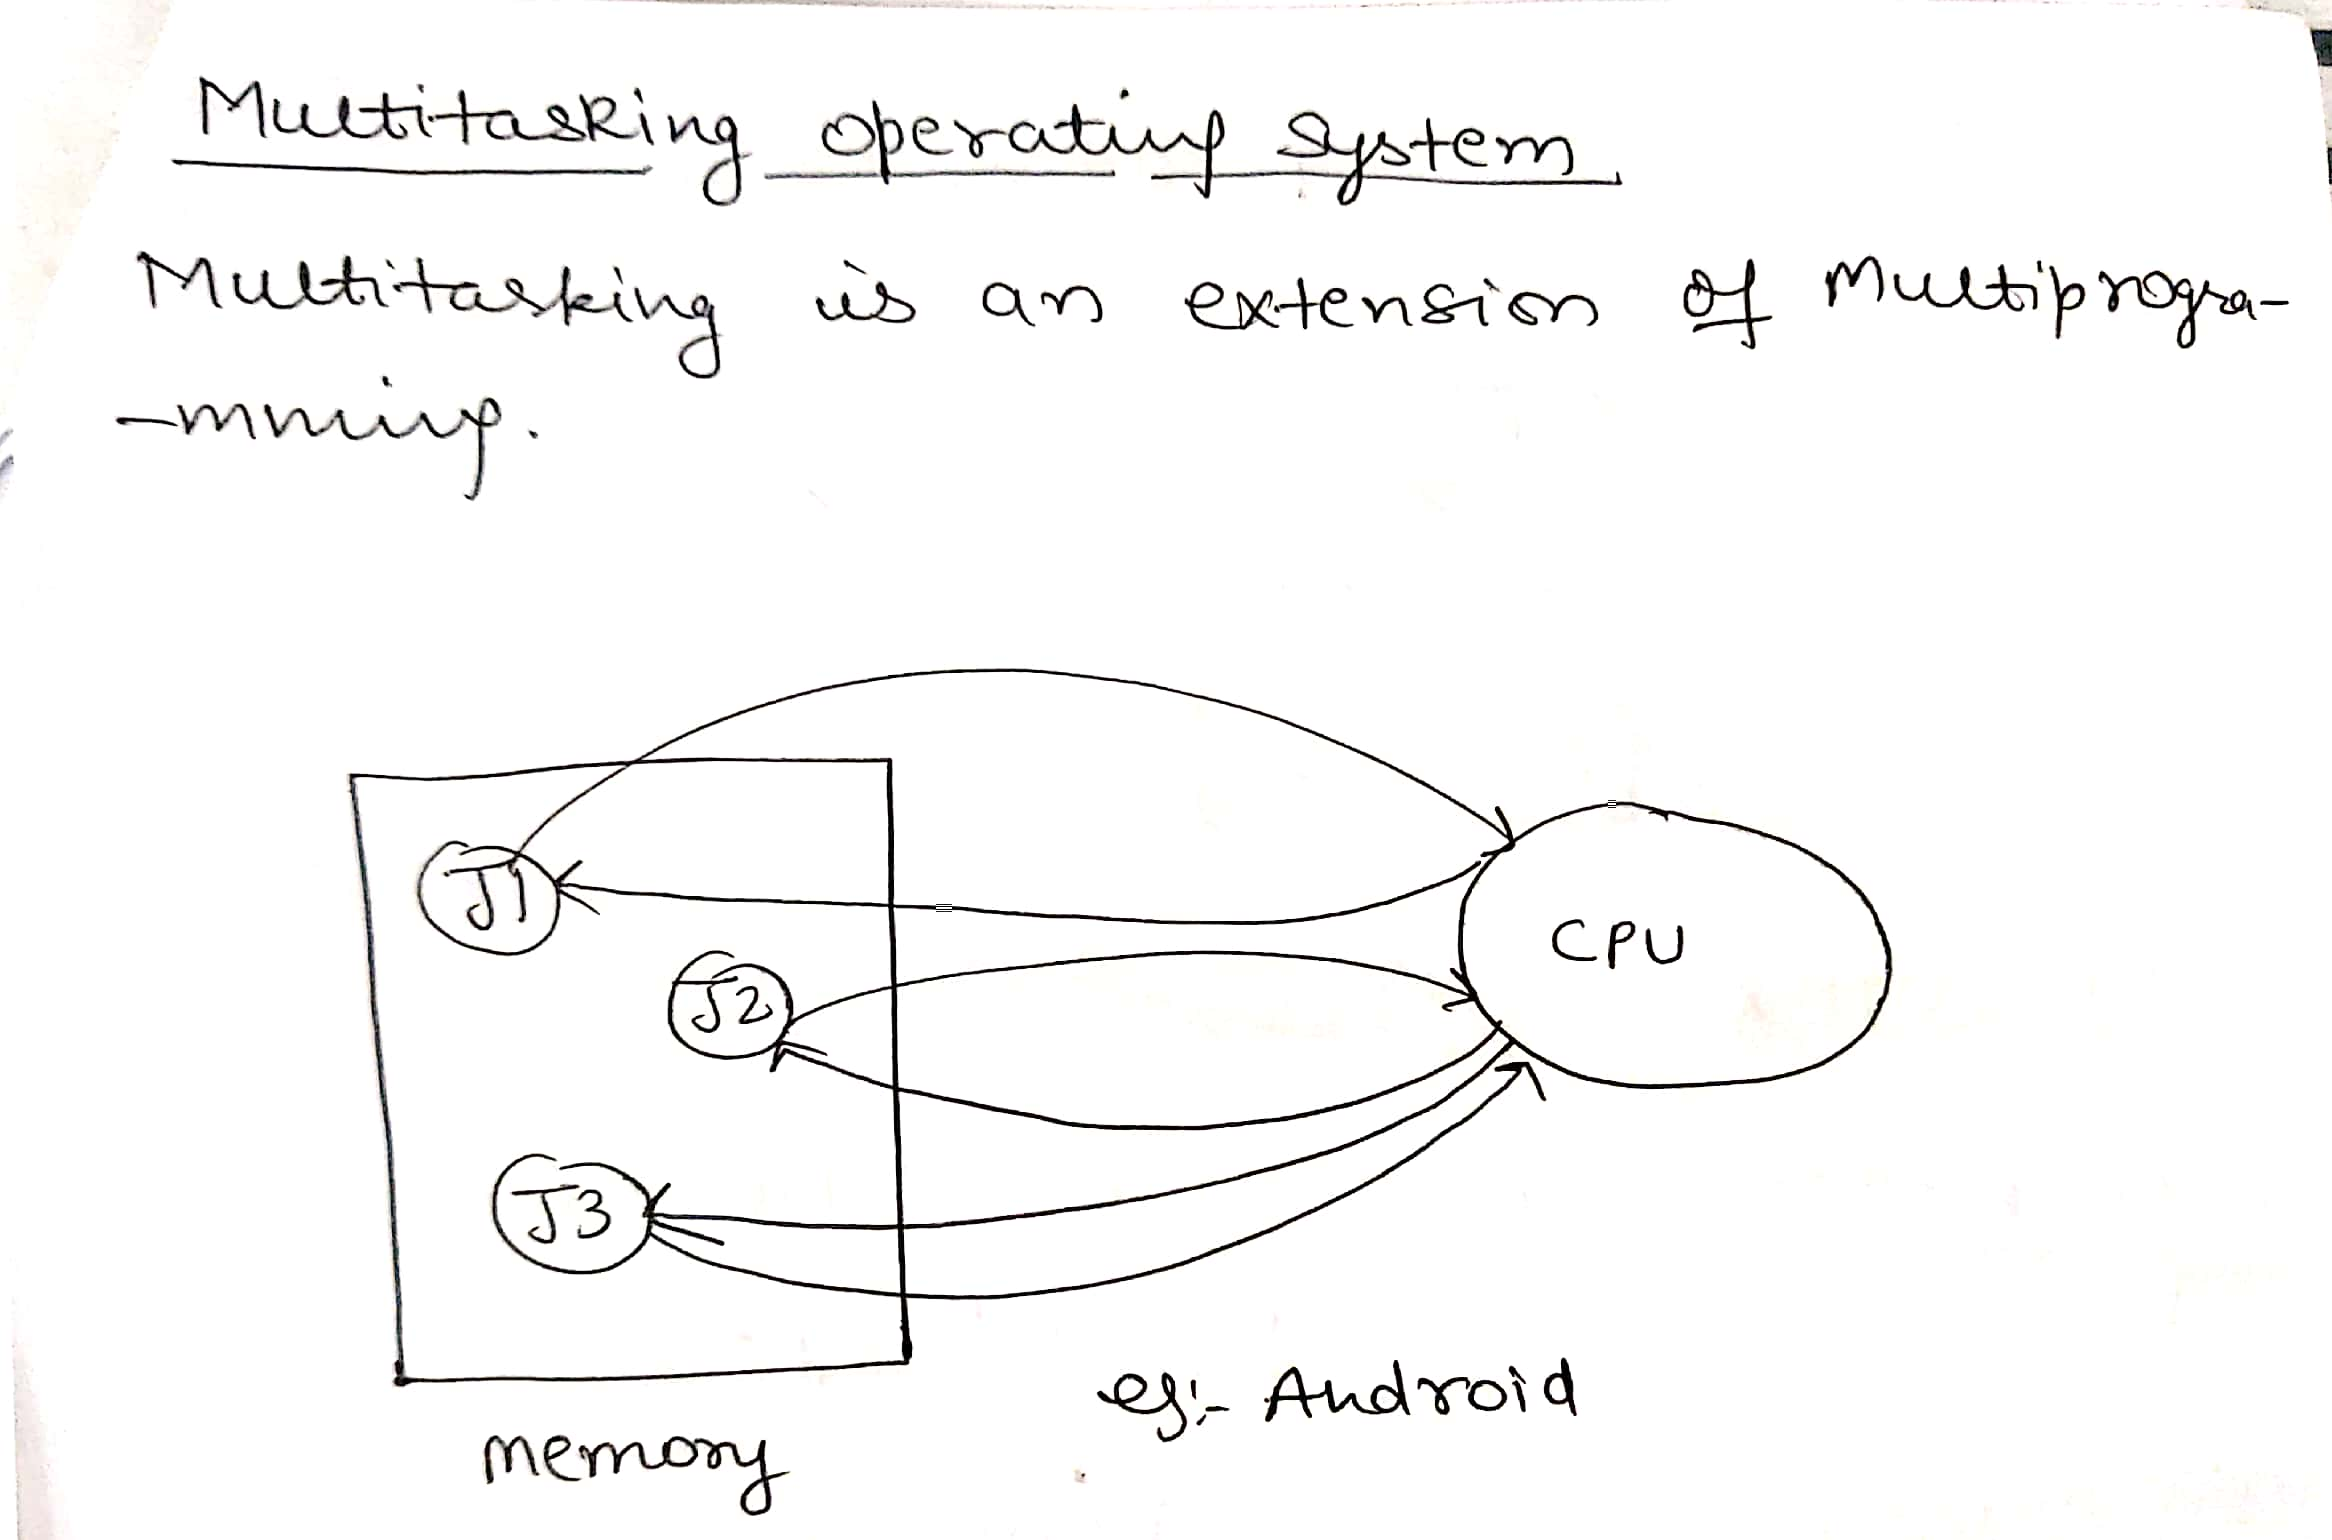 Multitasking operating system
Multitasking is an extension of Multiprogra-
-mming.
J1
J2
CPU
J3
eg:- Android
memory